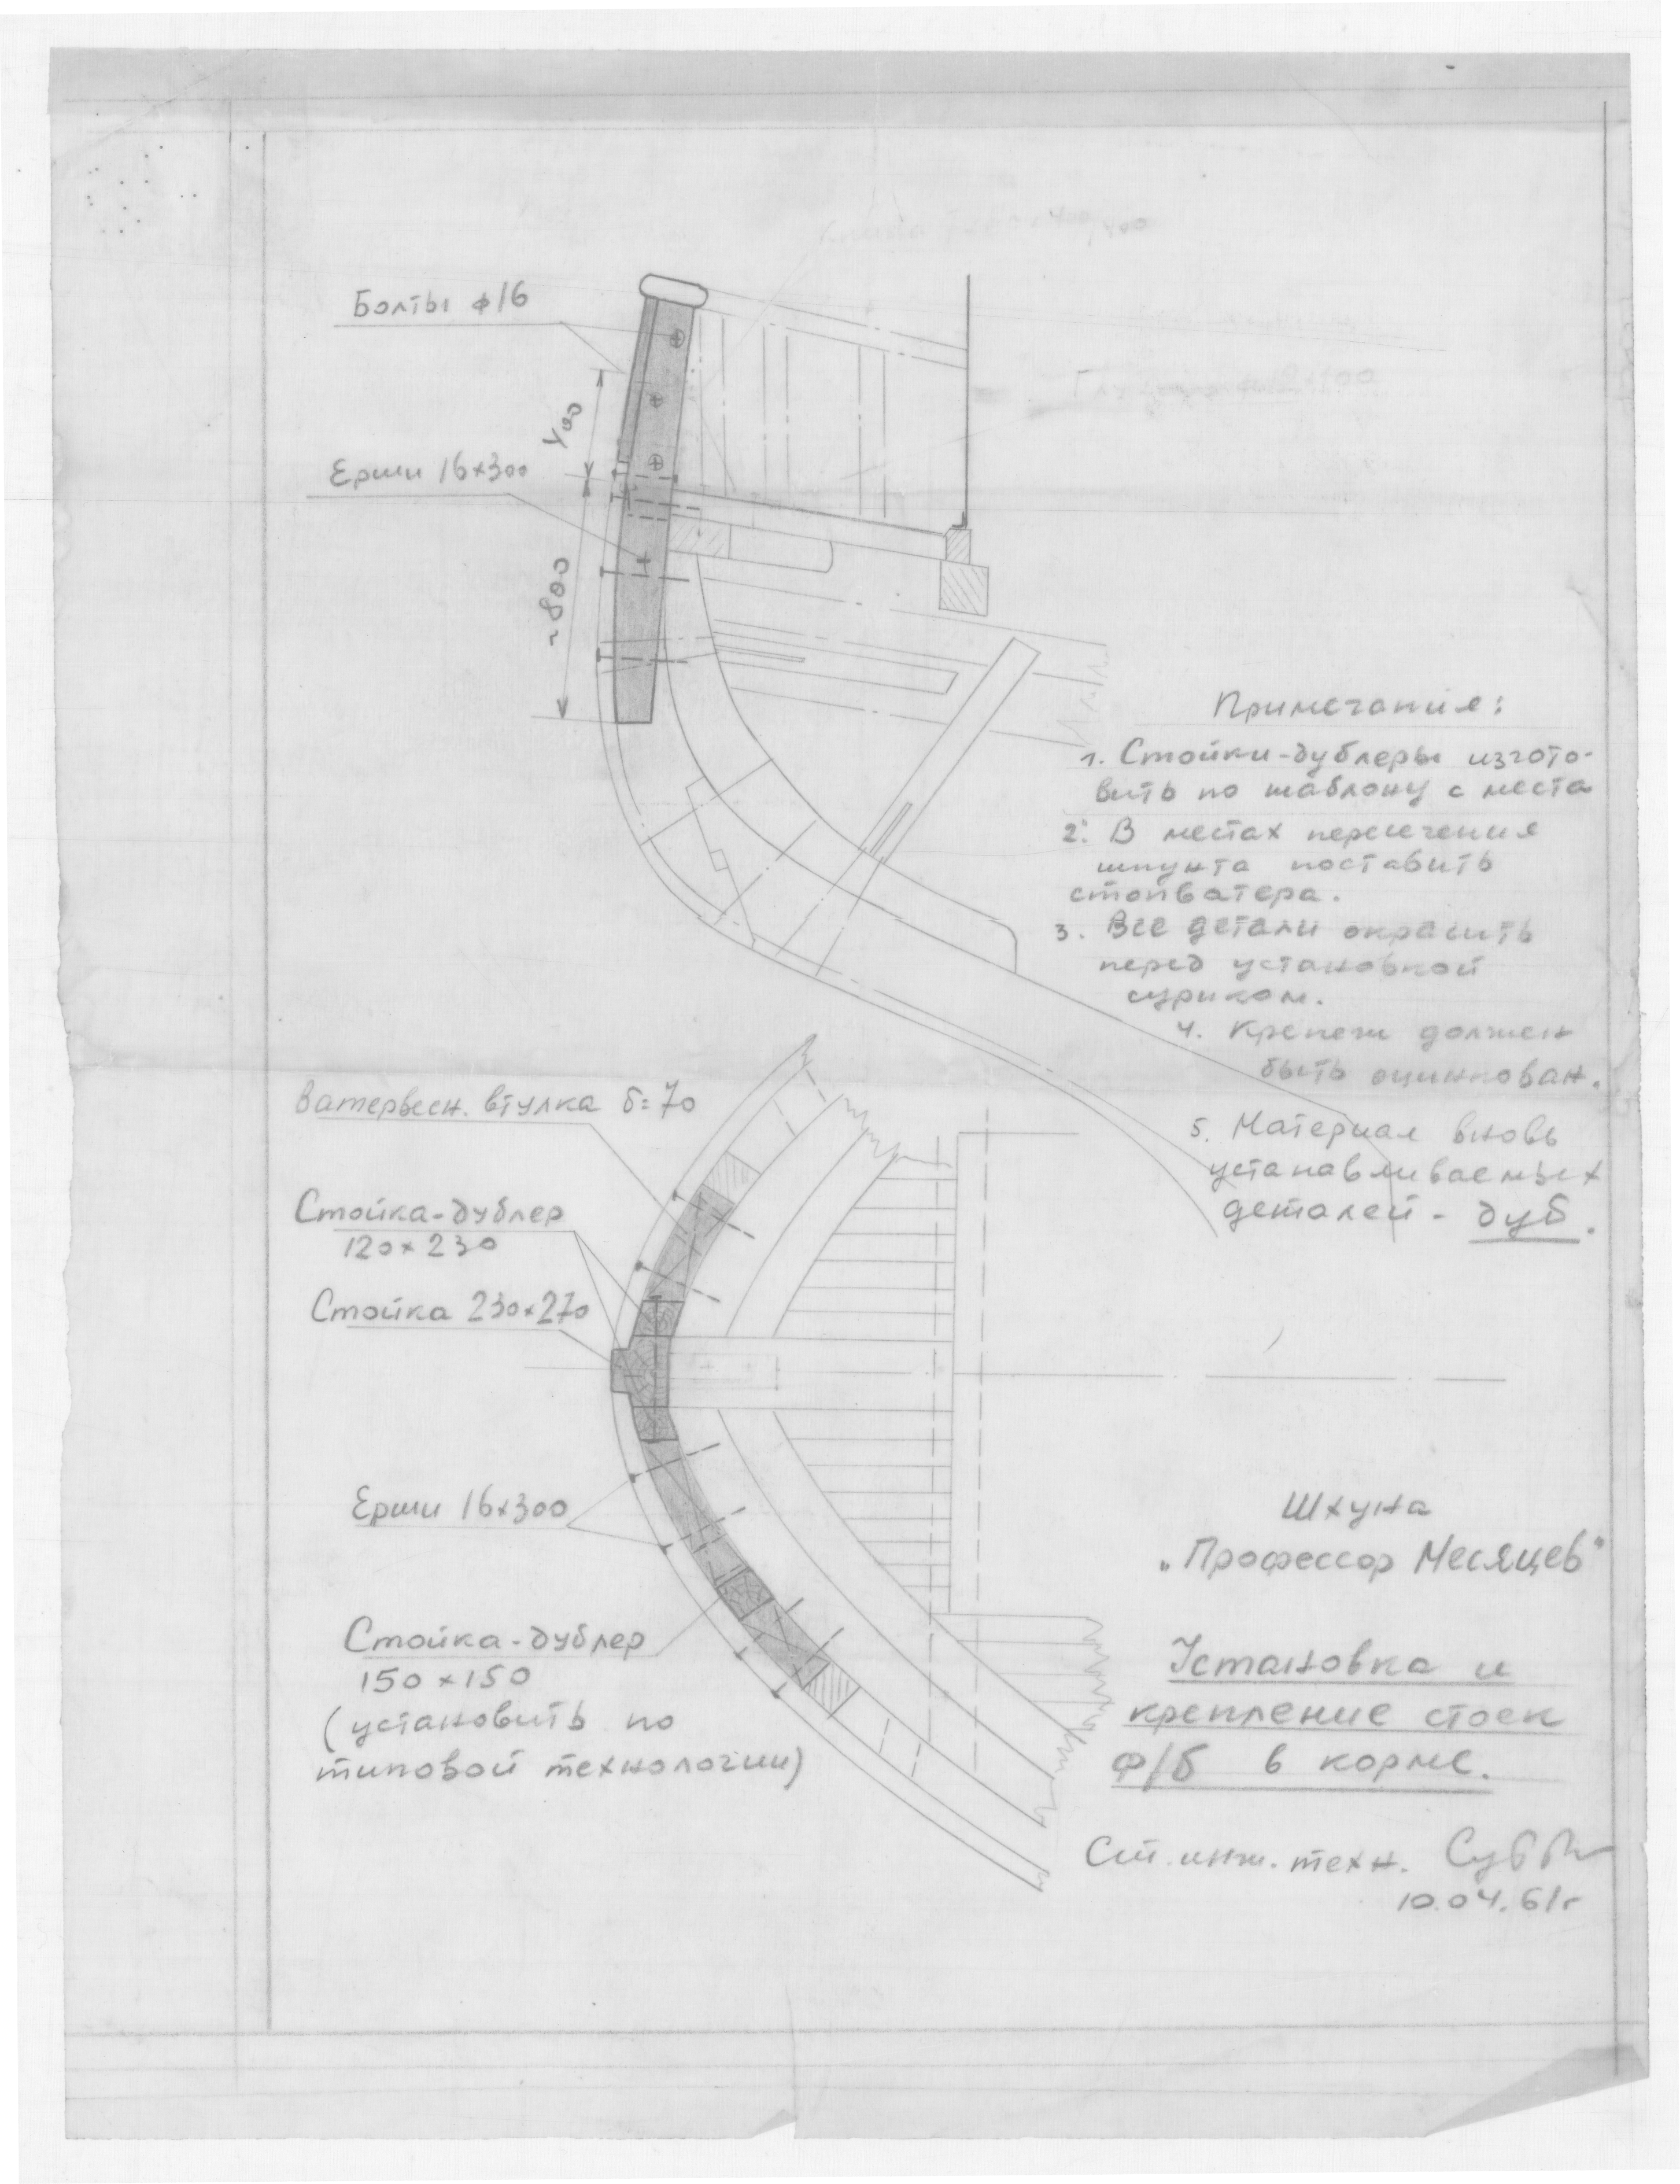 Болты ф16
400
Ерши 16х300
~800
Примечания:
1. Стойки-дублеры изгото-
вить по шаблону с места
2. В местах пересечения
шпунта поставить
стопватера.
3. Все детали окрасить
перед установкой
суриком.
4. Крепеж должен
быть оцинкован.
5. Материал вновь
устанавливаемых
деталей - дуб.
Ватервейсн. втулка б=70
Стойка-дублер
120х230
Стойка 230х270
Ерши 16х300
Стойка-дублер
150х150
(установить по
типовой технологии)
Шхуна
„Профессор Месяцев"
Установка и
крепление стоек
ф/б в корме.
Ст. инж. техн.
10.04.61г